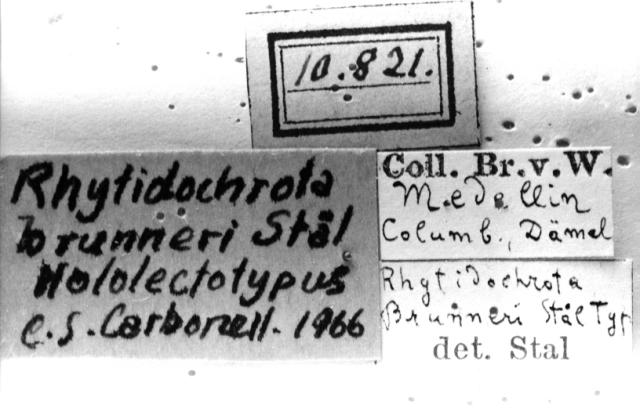 10.821.
Rhytidochrota
brunneri Stål
Hololectotypus
C.S. Carbonell. 1966
Coll. Br. v. W.
Medellin
Columb., Dämel
Rhytidochrota
Brunneri Stål Typ
det. Stal